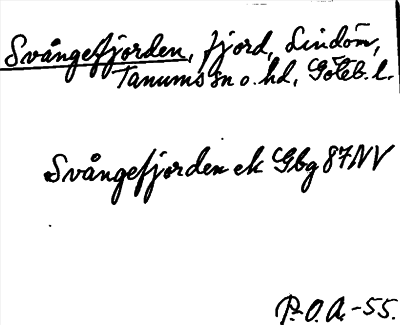 Svångefjorden, fjord, Lindön,
Tanums sn o. hd, Göteb. l.
Svångefjorden ek Gbg 87NV
P.O.A.-55.